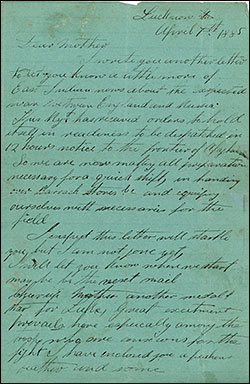 Lucknow
April 7th 1885
Dear Mother
I write you another letter
to let you know a little more of
East Indian news about the expected
war between England and Russia
Our Regt has received orders to hold
itself in readiness to be dispatched in
12 hours notice to the frontier of
So we are now making all preparation
necessary for a quick shift, in handing
our Barrack Stores &c and equiping
ourselves with necessaries for the
field
I expect this letter will startle
you but I am not gone yet,
I will let you know when we start
may be in the next mail
Mother another medal &
bar for Luke, Great excitement
prevails here especially among the
who are anxious for the
fight. I have enclosed you a
and some